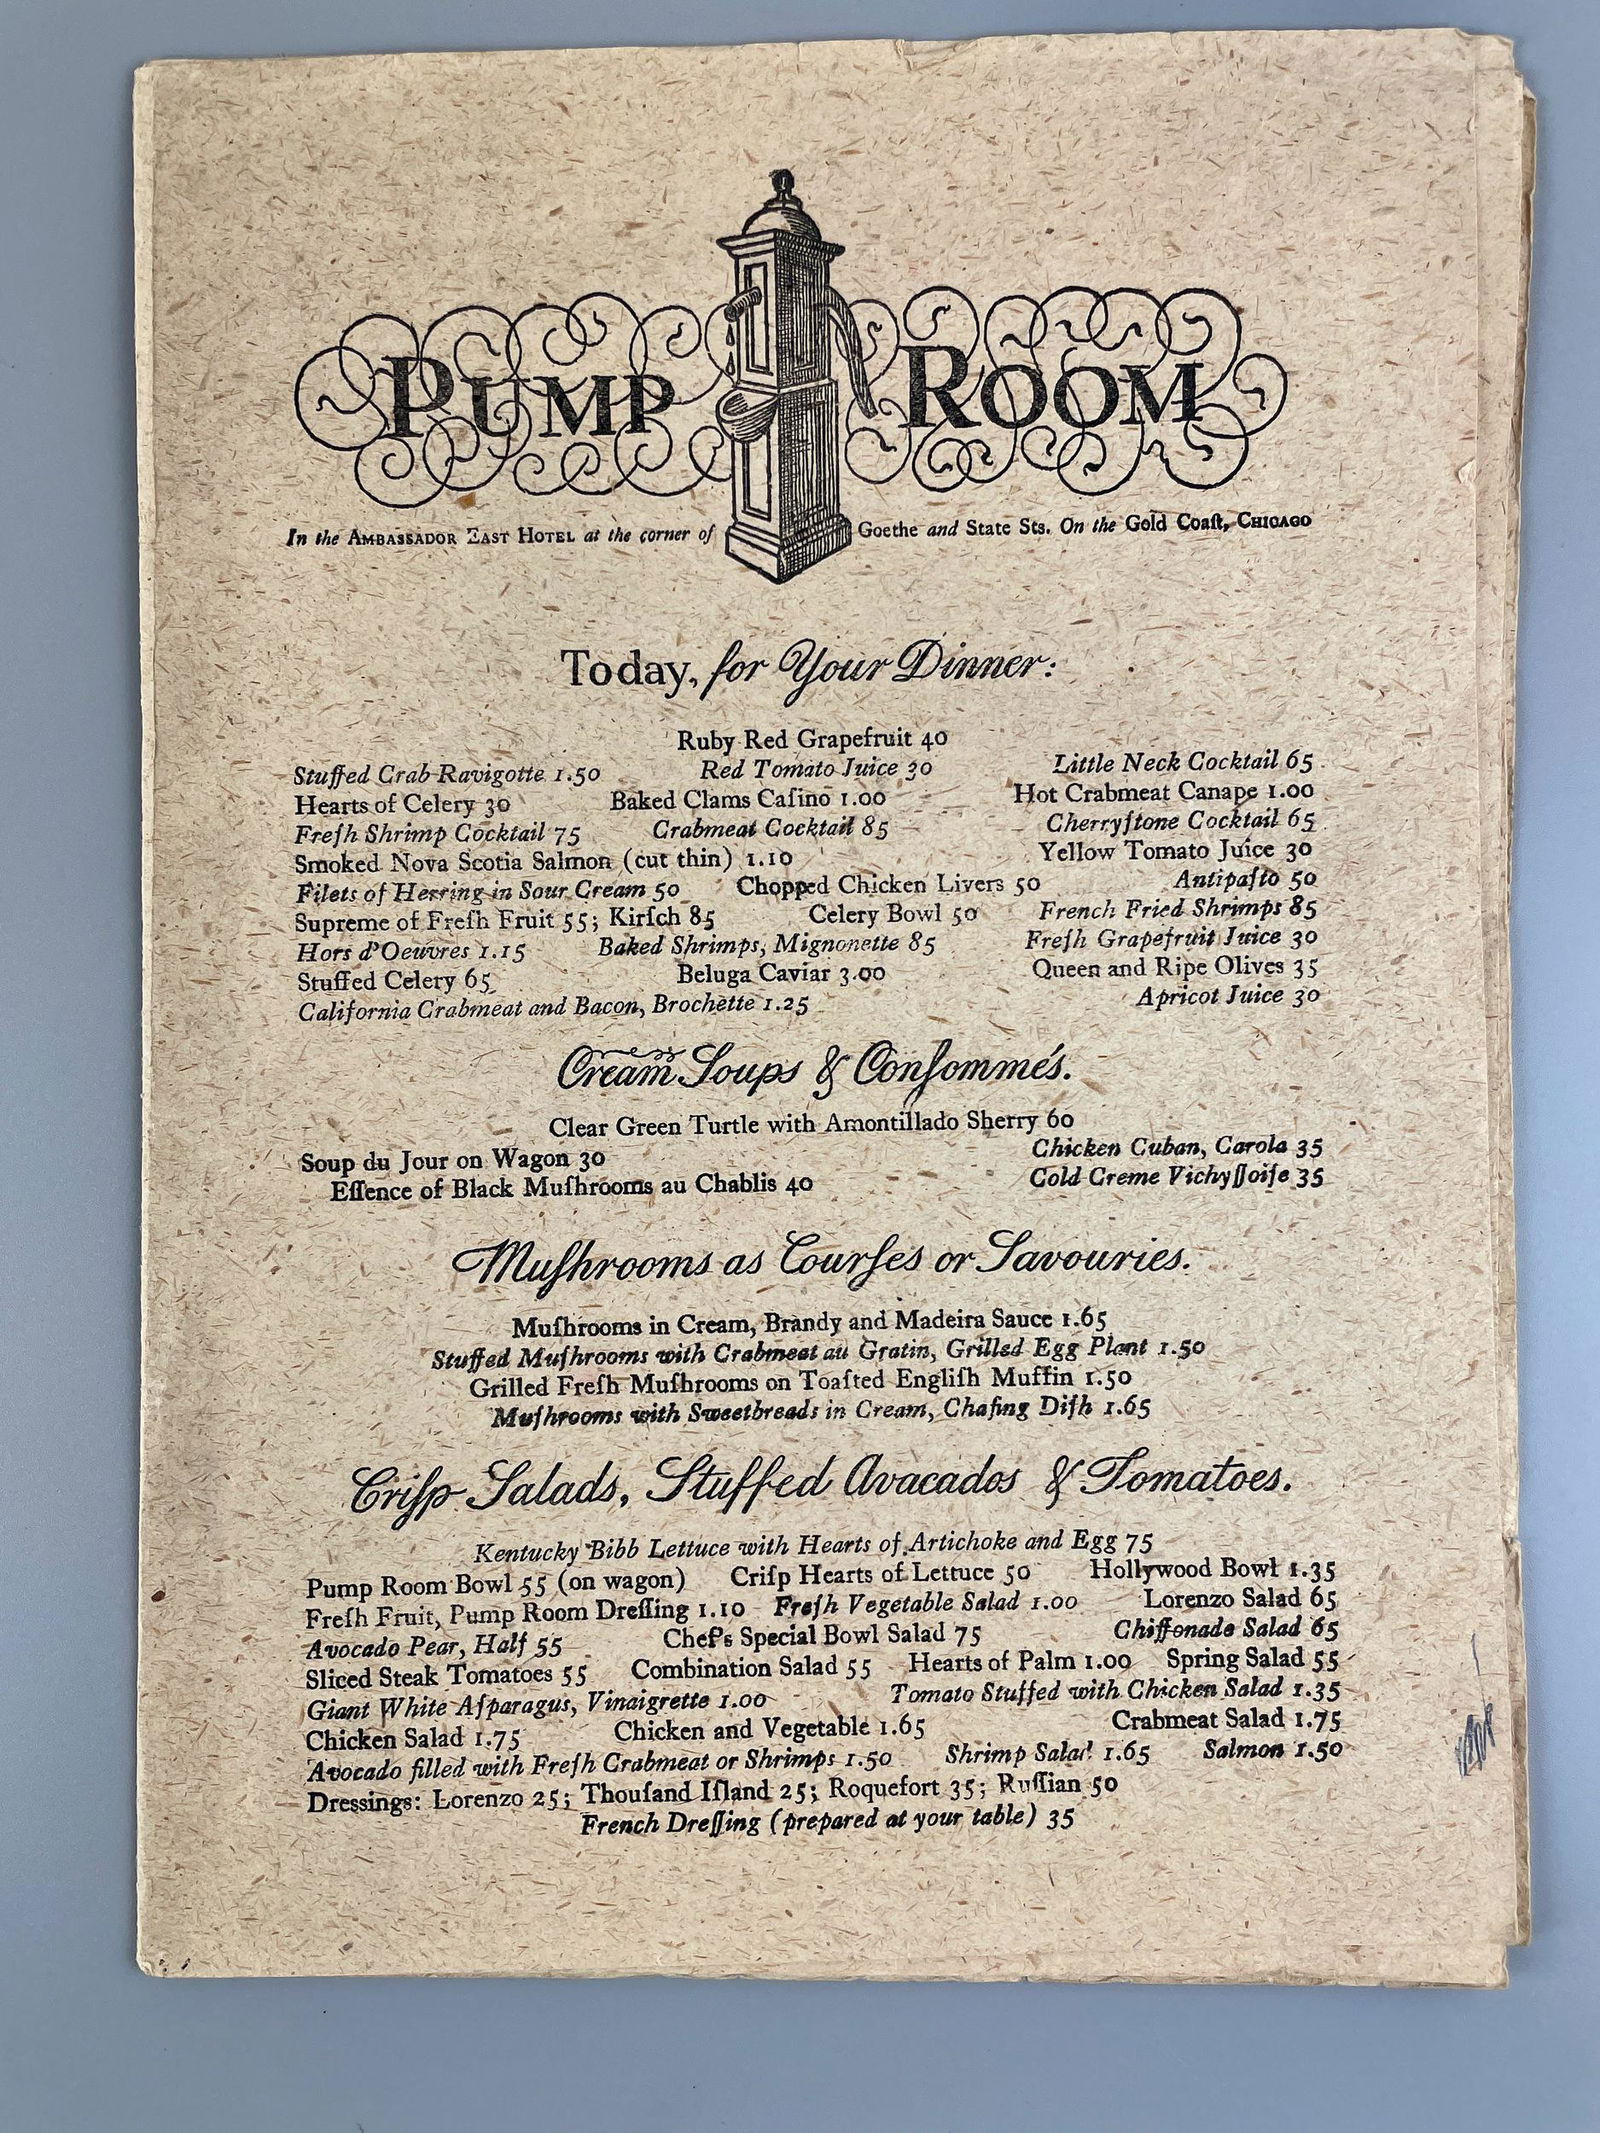 PUMP ROOM
In the AMBASSADOR EAST HOTEL at the corner of Goethe and State Sts. On the Gold Coaſt, CHICAGO
Today, for Your Dinner:
Ruby Red Grapefruit 40
Stuffed Crab Ravigotte 1.50 Red Tomato Juice 30 Little Neck Cocktail 65
Hearts of Celery 30 Baked Clams Caſino 1.00 Hot Crabmeat Canape 1.00
Freſh Shrimp Cocktail 75 Crabmeat Cocktail 85 Cherryſtone Cocktail 65
Smoked Nova Scotia Salmon (cut thin) 1.10 Yellow Tomato Juice 30
Filets of Herring in Sour Cream 50 Chopped Chicken Livers 50 Antipaſto 50
Supreme of Freſh Fruit 55; Kirſch 85 Celery Bowl 50 French Fried Shrimps 85
Hors d'Oeuvres 1.15 Baked Shrimps, Mignonette 85 Freſh Grapefruit Juice 30
Stuffed Celery 65 Beluga Caviar 3.00 Queen and Ripe Olives 35
California Crabmeat and Bacon, Brochette 1.25 Apricot Juice 30
Cream Soups & Conſommés.
Clear Green Turtle with Amontillado Sherry 60
Soup du Jour on Wagon 30 Chicken Cuban, Carola 35
Eſſence of Black Muſhrooms au Chablis 40 Cold Creme Vichyſſoiſe 35
Muſhrooms as Courſes or Savouries.
Muſhrooms in Cream, Brandy and Madeira Sauce 1.65
Stuffed Muſhrooms with Crabmeat au Gratin, Grilled Egg Plant 1.50
Grilled Freſh Muſhrooms on Toaſted Engliſh Muffin 1.50
Muſhrooms with Sweetbreads in Cream, Chafing Diſh 1.65
Criſp Salads, Stuffed Avacados & Tomatoes.
Kentucky Bibb Lettuce with Hearts of Artichoke and Egg 75
Pump Room Bowl 55 (on wagon) Criſp Hearts of Lettuce 50 Hollywood Bowl 1.35
Freſh Fruit, Pump Room Dreſſing 1.10 Freſh Vegetable Salad 1.00 Lorenzo Salad 65
Avocado Pear, Half 55 Chef's Special Bowl Salad 75 Chiffonade Salad 65
Sliced Steak Tomatoes 55 Combination Salad 55 Hearts of Palm 1.00 Spring Salad 55
Giant White Aſparagus, Vinaigrette 1.00 Tomato Stuffed with Chicken Salad 1.35
Chicken Salad 1.75 Chicken and Vegetable 1.65 Crabmeat Salad 1.75
Avocado filled with Freſh Crabmeat or Shrimps 1.50 Shrimp Salad 1.65 Salmon 1.50
Dressings: Lorenzo 25; Thouſand Iſland 25; Roquefort 35; Ruſſian 50
French Dreſſing (prepared at your table) 35